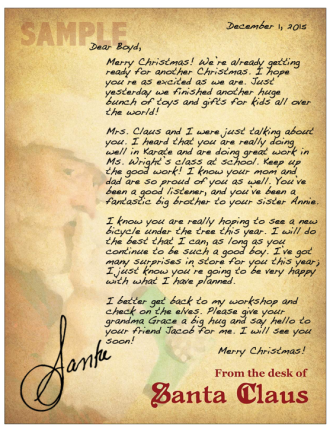 SAMPLE
December 1, 2015
Dear Boyd,
Merry Christmas! We're already getting
ready for another Christmas. I hope
you're as excited as we are. Just
yesterday we finished another huge
bunch of toys and gifts for kids all over
the world!
Mrs. Claus and I were just talking about
you. I heard that you are really doing
well in Karate and are doing great work in
Ms. Wright's class at school. Keep up
the good work! I know your mom and
dad are so proud of you as well. You've
been a good listener, and you've been a
fantastic big brother to your sister Annie.
I know you are really hoping to see a new
bicycle under the tree this year. I will do
the best that I can, as long as you
continue to be such a good boy. I've got
many surprises in store for you this year,
I just know you're going to be very happy
with what I have planned.
I better get back to my workshop and
check on the elves. Please give your
grandma Grace a big hug and say hello to
your friend Jacob for me. I will see you
soon!
Merry Christmas!
Santa
From the desk of
Santa Claus